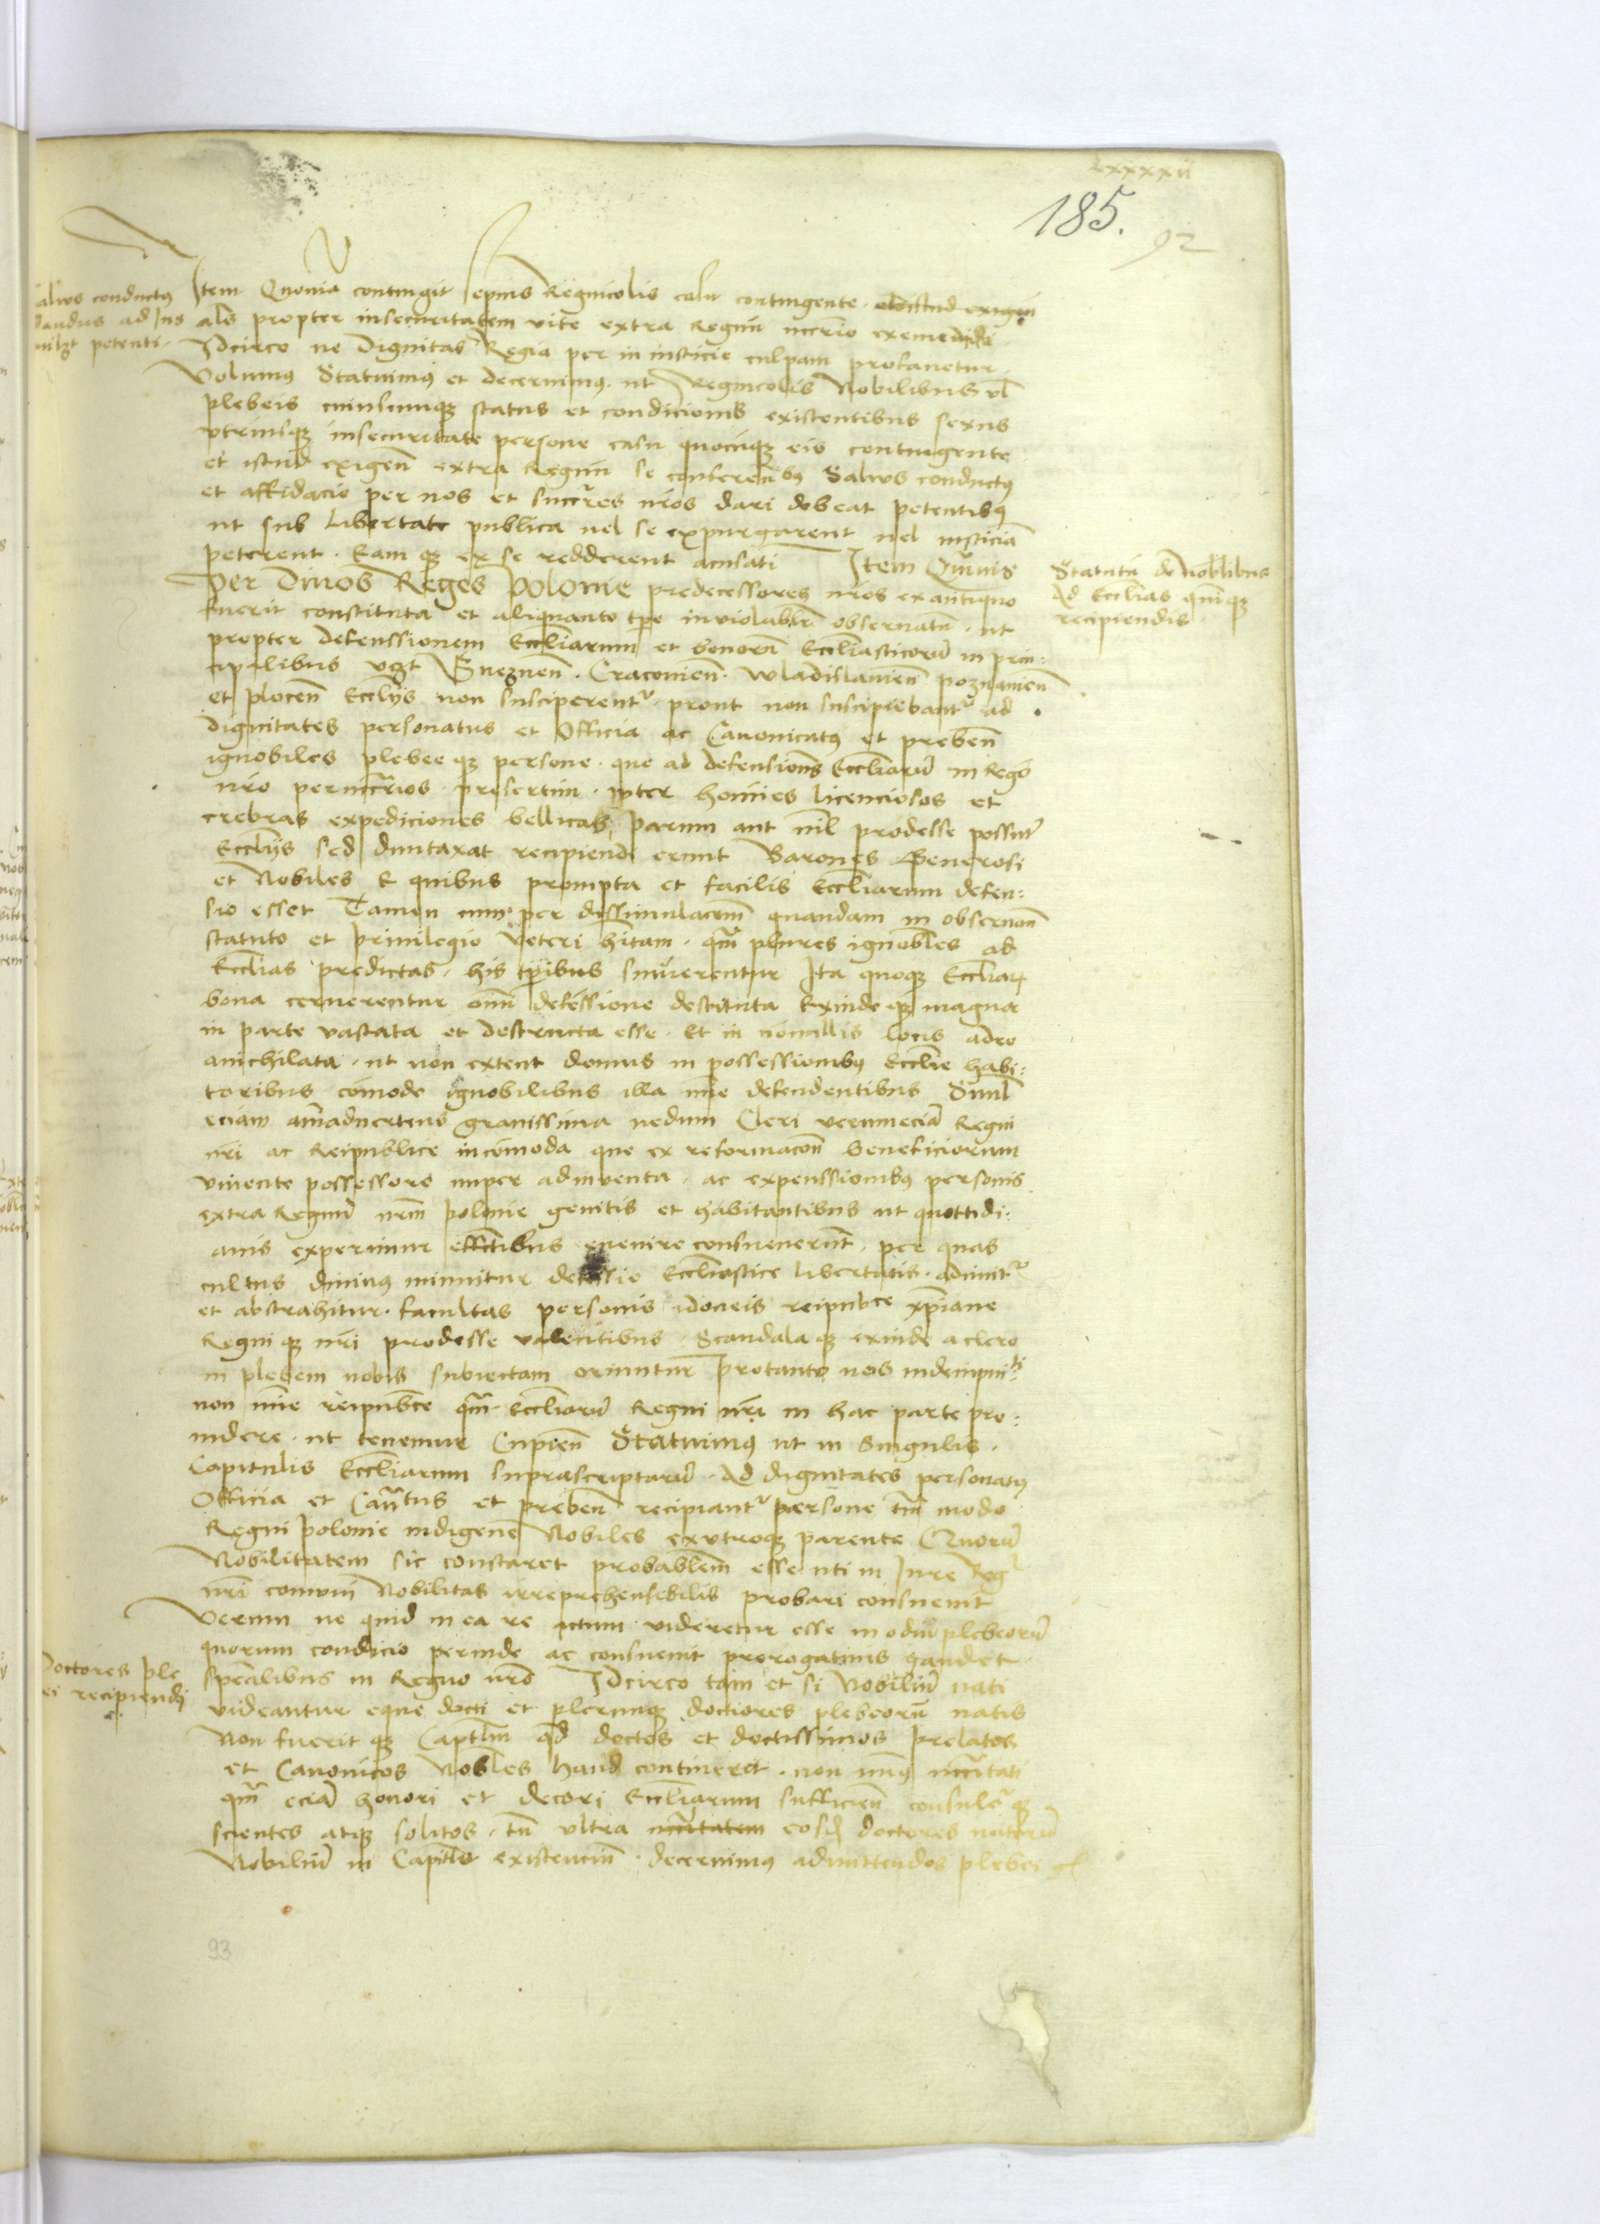 185.
92
Item Quoniã contingit sepius Regnicolis casu contingente
als propter insecuritatem vite extra Regnũ
Idcirco ne Dignitas Regia per iniusticie culpam profanetur
Volumus Statuimus et decernimus ut Regnicolis Nobilibus vl
plebeis cuiuscumqz status et condicionis existentibus sexus
vtriusqz insecuritate persone casu quocũqz eis contingente
et istud exigen extra Regnũ se conferentibus Salvus conductus
et affidacio per nos et succres nros dari debeat petentibus
ut sub libertate publica uel se expurgarent uel iusticiã
peterent. Eam qz ex se redderent acusati Item Quãuis
per Diuos Reges Polonie predecessores nros ex antiquo
fuerit constituta et aliquanto tpe inviolabilr obseruatũ. ut
propter defenssionem Eccliarum et bonorũ Eccliasticorũ in prin:
cipalibus vzt Gneznen. Cracouien. Wladislauien poznanien
et plocen Eccliis non susciperentr. pront non suscipiebantr ad
dignitates personatus et Officia ac Canonicatus et preben
ignobiles plebee qz persone. que ad defensionẽ Eccliarũ in Regno
nro pernecrios. presertim. inter homĩes licenciosos et
crebras expediciones bellicas parum aut nil prodesse possunt
Eccliis sed duntaxat recipiendi erunt Barones Generosi
et Nobiles E quibus prompta et facilis Eccliarum defen:
sio esset Tamen cum per dissimulacionem quandam in obseruan
statuto et priuilegio Veteri hitam. qm plures ignobles ad
Ecclias predictas. his tpribus Ita quoqz Eccliar
bona cernerentur omĩ defẽssione destituta Exinde qz magna
in parte vastata et destructa esse. Et in nõnullis locis adeo
anichilata. ut non extent domus in possessionibus Ecclie habi:
toribus cõmode ignobilibus illa mĩe defendentibus Siml
eciam aĩaduertens grauissima nedum Cleri verumeciã Regni
nri ac Reipublice incõmoda que ex reformacon beneficiorum
viuente possessore nuper adinventa. ac expenssionibus personis
extra Regnũ nrm Polonie genitis et habitantibus ut quottidi:
anis experimur effctibus euenire consueuerũt. per quas
cultus diuinus minuitur defessio Eccliastice libertatis. adimitr
et abstrahitur. facultas personis idoneis reipubce xpiane
Regni qz nri prodesse valentibus. Scandala qz exinde a clero
in plebem nobis subiectam oriuntur Protanto nos indempni:
non mĩe reipubce qm Eccliarũ Regni nri in hac parte pro:
uidere. ut tenemur Cupien Statuimus ut in Singulis.
Capitulis Eccliarum suprascriptarũ. Ad dignitates personatus
Officia et Canctus et preben recipiantr persone tm modo
Regni Polonie indigene Nobiles ex vtroqz parente Quorũ
Nobilitatem sic constaret probablem esse uti in Jure Regi
nri comuni Nobilitas irreprehensibilis probari consueuit
Verum ne quid in ea re actum videretur esse in odiũ plebeorũ
quorum condicio perinde ac consueuit prerogatiuis gaudet
spealibus in Regno nro Idcirco tam et si Nobiliũ nati
videantur eque docti et plerumqz doctiores plebeorũ natis
Non fuerit qz Captlm qd doctos et doctissimos prelatos
et Canonicos Nobles haud contineret. non minus necitati
qm eciã honori et decori Eccliarum sufficien consuler qz
scientes atqz solitos. tñ ultra eosdẽ doctores natorũ
Nobiliũ in Capitlo existenciũ. decernimus admittendos plebei
alvus conductus
dandus ad Jus
petenti
Statutũ de Noblibus
Ad Ecclias quiqz
recipiendis
Doctores ple
ei recipiendi
93